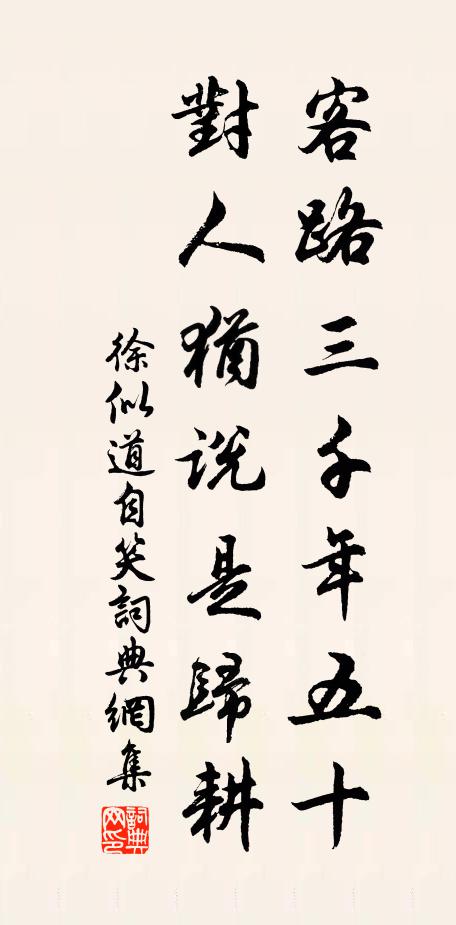 客路三千年五十
對人猶説是歸耕
徐似道自笑詞典網集
詞典網印